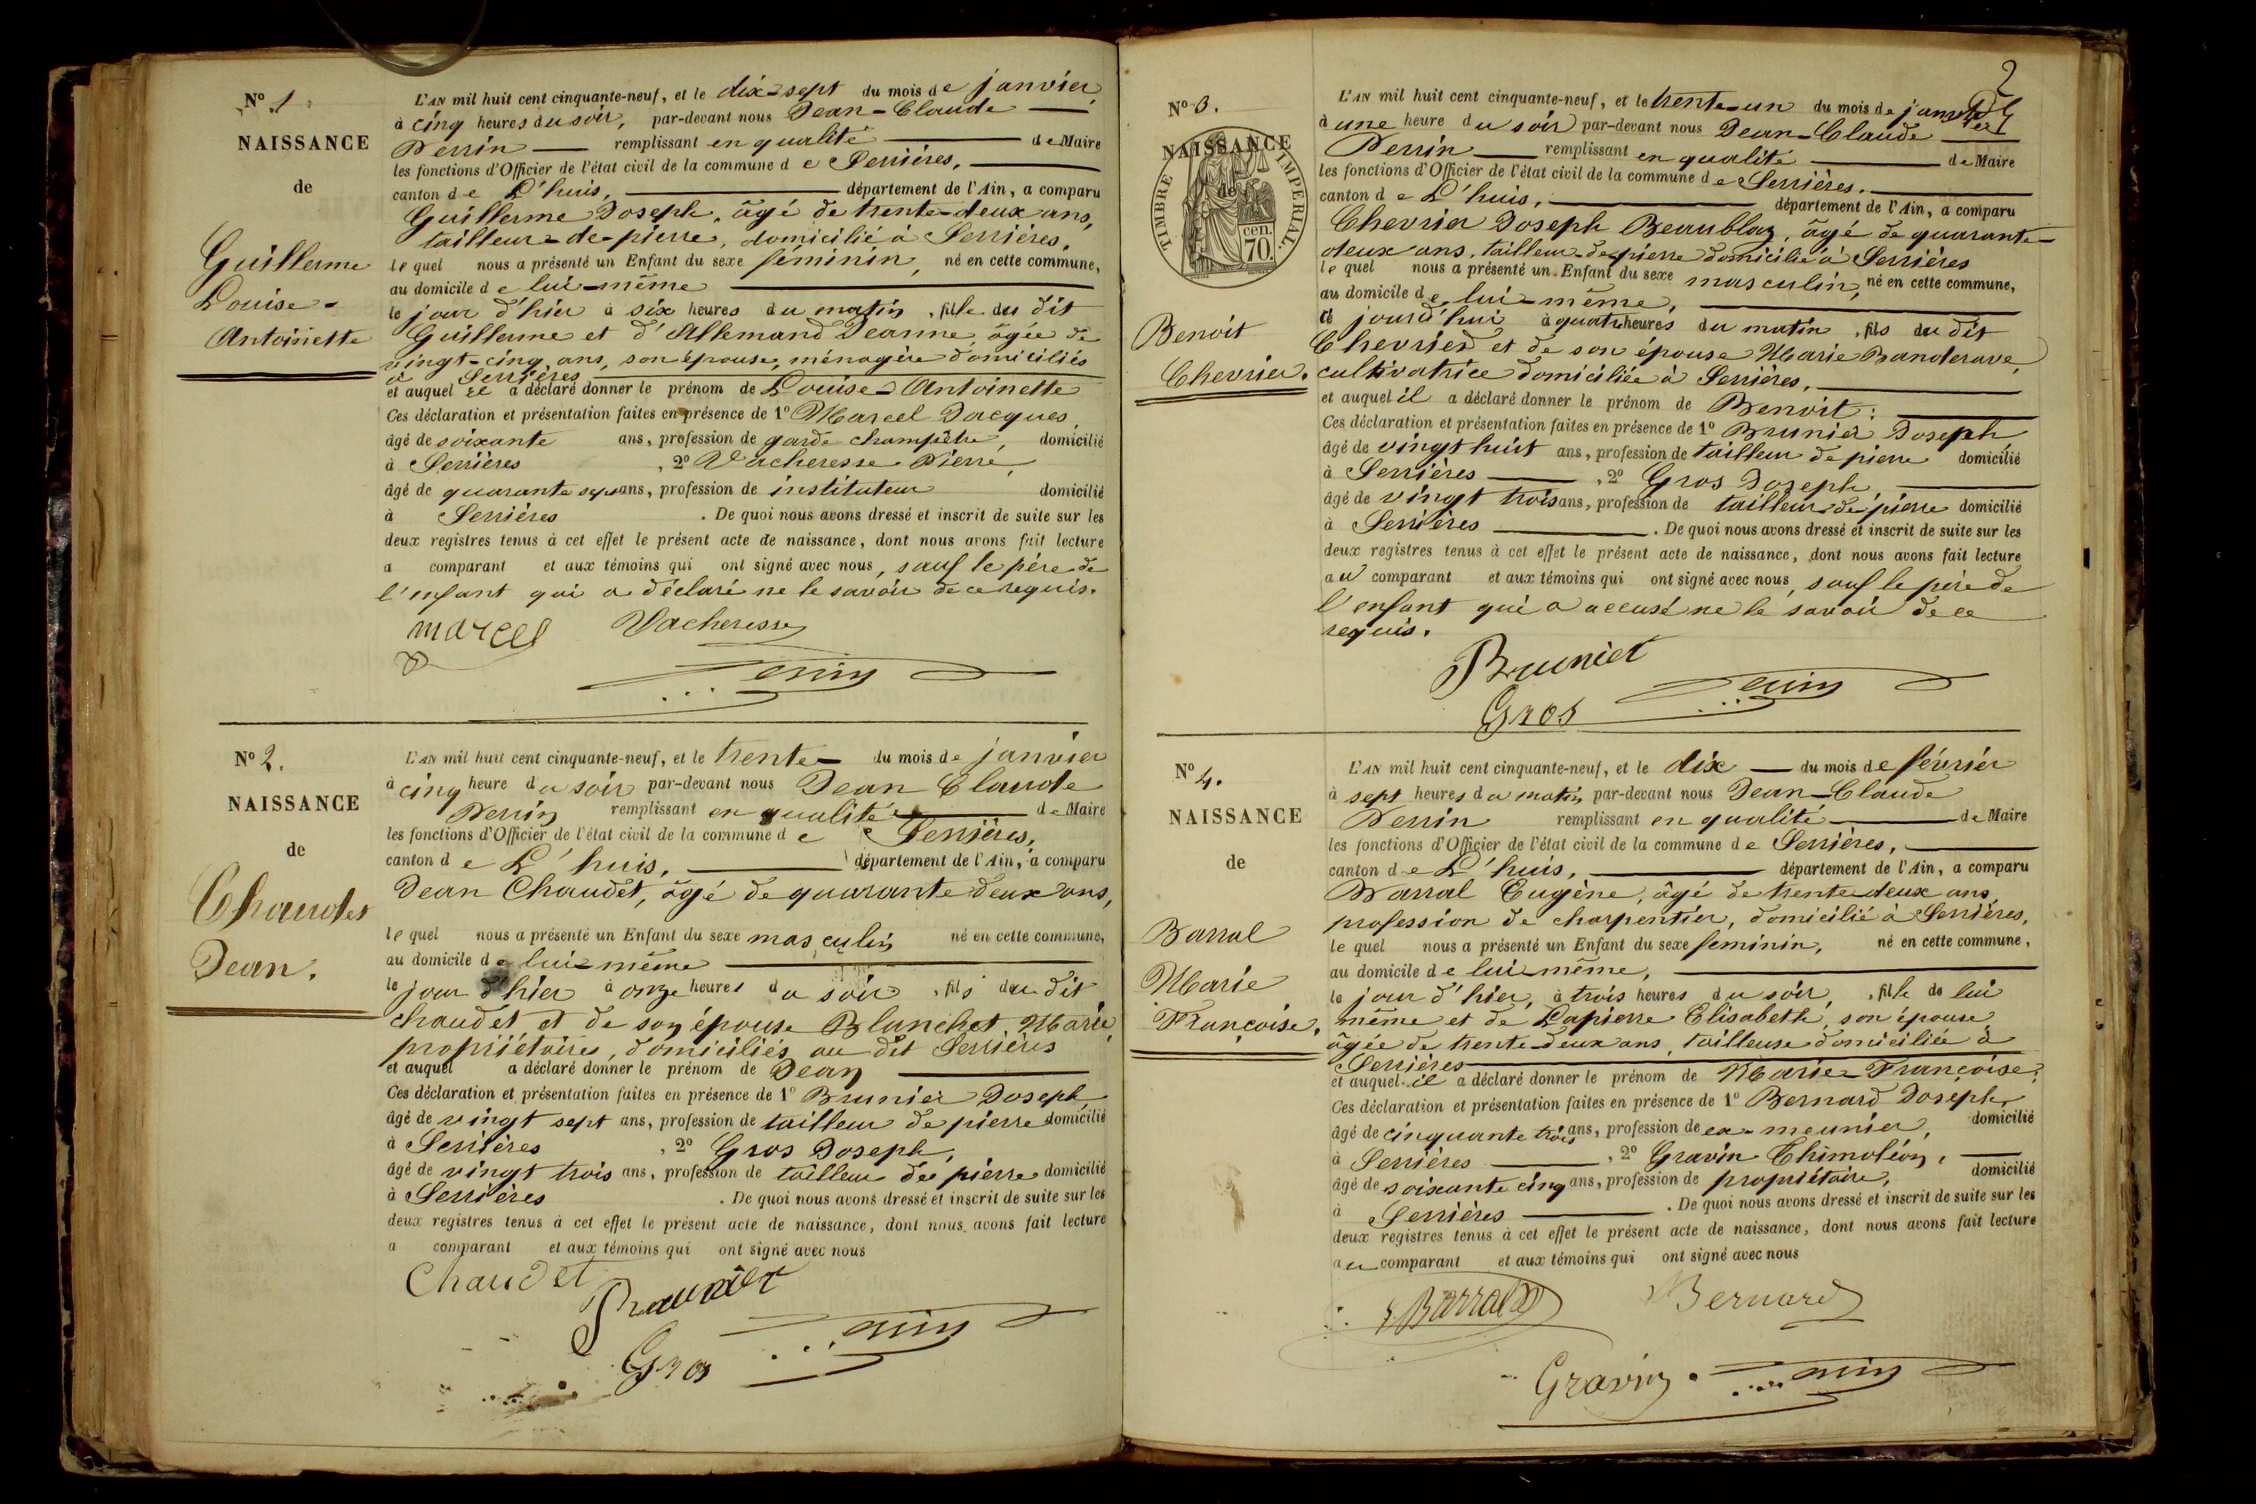 Nº 1.
NAISSANCE
de
Guillerme
Louise-
Antoinette
L'AN mil huit cent cinquante-neuf, et le dix-sept du mois de janvier,
à cinq heures du soir, par-devant nous Jean-Claude
Perrin remplissant en qualité de Maire
les fonctions d'Officier de l'état civil de la commune de Serrières,
canton de L'huis, département de l'Ain, a comparu
Guillerme Joseph, âgé de trente-deux ans,
tailleur-de-pierre, domicilié à Serrières,
lequel nous a présenté un Enfant du sexe féminin, né en cette commune,
au domicile de lui-même
le jour d'hier à six heures du matin, fille du dit
Guillerme et d'Allemand Jeanne, âgée de
vingt-cinq ans, son épouse, ménagère domiciliés
à Serrières
et auquel il a déclaré donner le prénom de Louise-Antoinette
Ces déclaration et présentation faites en présence de 1º Marcel Jacques,
âgé de soixante ans, profession de garde champêtre, domicilié
à Serrières, 2º Vacheresse Pierre,
âgé de quarante sept ans, profession de instituteur domicilié
à Serrières. De quoi nous avons dressé et inscrit de suite sur les
deux registres tenus à cet effet le présent acte de naissance, dont nous avons fait lecture
a comparant et aux témoins qui ont signé avec nous, sauf le père de
l'enfant qui a déclaré ne le savoir de ce requis.
Marcel Vacheresse
Perrin
Nº 2.
NAISSANCE
de
Chaudet
Jean.
L'AN mil huit cent cinquante-neuf, et le trente du mois de janvier
à cinq heure du soir par-devant nous Jean Claude
Perrin remplissant en qualité de Maire
les fonctions d'Officier de l'état civil de la commune de Serrières,
canton de L'huis, département de l'Ain, a comparu
Jean Chaudet, âgé de quarante deux ans,
lequel nous a présenté un Enfant du sexe masculin né en cette commune,
au domicile de lui-même
le jour d'hier à onze heures du soir, fils du dit
chaudet et de son épouse Blanchet Marie,
propriétaires, domiciliés au dit Serrières
et auquel a déclaré donner le prénom de Jean
Ces déclaration et présentation faites en présence de 1º Brunier Joseph
âgé de vingt sept ans, profession de tailleur de pierre domicilié
à Serrières, 2º Gros Joseph,
âgé de vingt trois ans, profession de tailleur de pierre domicilié
à Serrières. De quoi nous avons dressé et inscrit de suite sur les
deux registres tenus à cet effet le présent acte de naissance, dont nous avons fait lecture
a comparant et aux témoins qui ont signé avec nous
Chaudet Brunier
Gros Perrin
2
Nº 3.
NAISSANCE
de
TIMBRE IMPERIAL.
70 cen.
Benoit
Chevrier.
L'AN mil huit cent cinquante-neuf, et le trente-un du mois de janvier
à une heure du soir par-devant nous Jean-Claude
Perrin remplissant en qualité de Maire
les fonctions d'Officier de l'état civil de la commune de Serrières.
canton de L'huis, département de l'Ain, a comparu
Chevrier Joseph Beaublay, âgé de quarante-
deux ans, tailleur-de-pierre domicilié à Serrières
lequel nous a présenté un Enfant du sexe masculin, né en cette commune,
au domicile de lui-même,
ce jourd'hui à quatre heures du matin, fils du dit
Chevrier et de son épouse Marie
cultivatrice domiciliée à Serrières,
et auquel il a déclaré donner le prénom de Benoit:
Ces déclaration et présentation faites en présence de 1º Brunier Joseph
âgé de vingt huit ans, profession de tailleur de pierre domicilié
à Serrières, 2º Gros Joseph,
âgé de vingt trois ans, profession de tailleur de pierre domicilié
à Serrières. De quoi nous avons dressé et inscrit de suite sur les
deux registres tenus à cet effet le présent acte de naissance, dont nous avons fait lecture
au comparant et aux témoins qui ont signé avec nous, sauf le père de
l'enfant qui a accusé ne le savoir de ce
requis.
Brunier
Gros Perrin
Nº 4.
NAISSANCE
de
Barral
Marie
Françoise.
L'AN mil huit cent cinquante-neuf, et le dix du mois de février
à sept heures du matin par-devant nous Jean-Claude
Perrin remplissant en qualité de Maire
les fonctions d'Officier de l'état civil de la commune de Serrières,
canton de L'huis, département de l'Ain, a comparu
Barral Eugène, âgé de trente deux ans,
profession de charpentier, domicilié à Serrières,
lequel nous a présenté un Enfant du sexe feminin, né en cette commune,
au domicile de lui-même,
le jour d'hier, à trois heures du soir, fille de lui
même et de Lapierre Elisabeth, son épouse,
âgée de trente-deux ans, tailleuse domiciliée à
Serrières
et auquel il a déclaré donner le prénom de Marie-Françoise.
Ces déclaration et présentation faites en présence de 1º Bernard Joseph,
âgé de cinquante trois ans, profession de ex-meunier, domicilié
à Serrières, 2º Gravin Thimoléon,
âgé de soixante cinq ans, profession de propriétaire, domicilié
à Serrières. De quoi nous avons dressé et inscrit de suite sur les
deux registres tenus à cet effet le présent acte de naissance, dont nous avons fait lecture
au comparant et aux témoins qui ont signé avec nous
Barral Bernard
Gravin Perrin